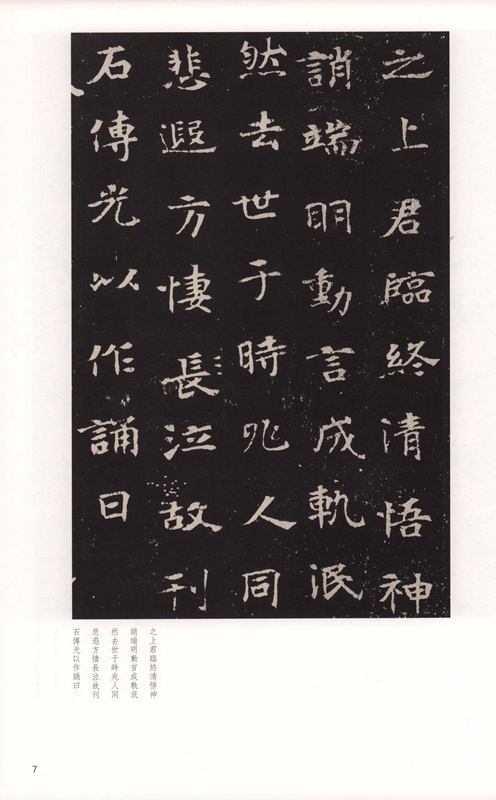 之上君臨終清悟神
誚端明動言成軌泯
然去世于時兆人同
悲遐方悽長泣故刊
石傳光以作誦曰
之上君臨終清悟神
誚端明動言成軌泯
然去世于時兆人同
悲遐方悽長泣故刊
石傳光以作誦曰
7